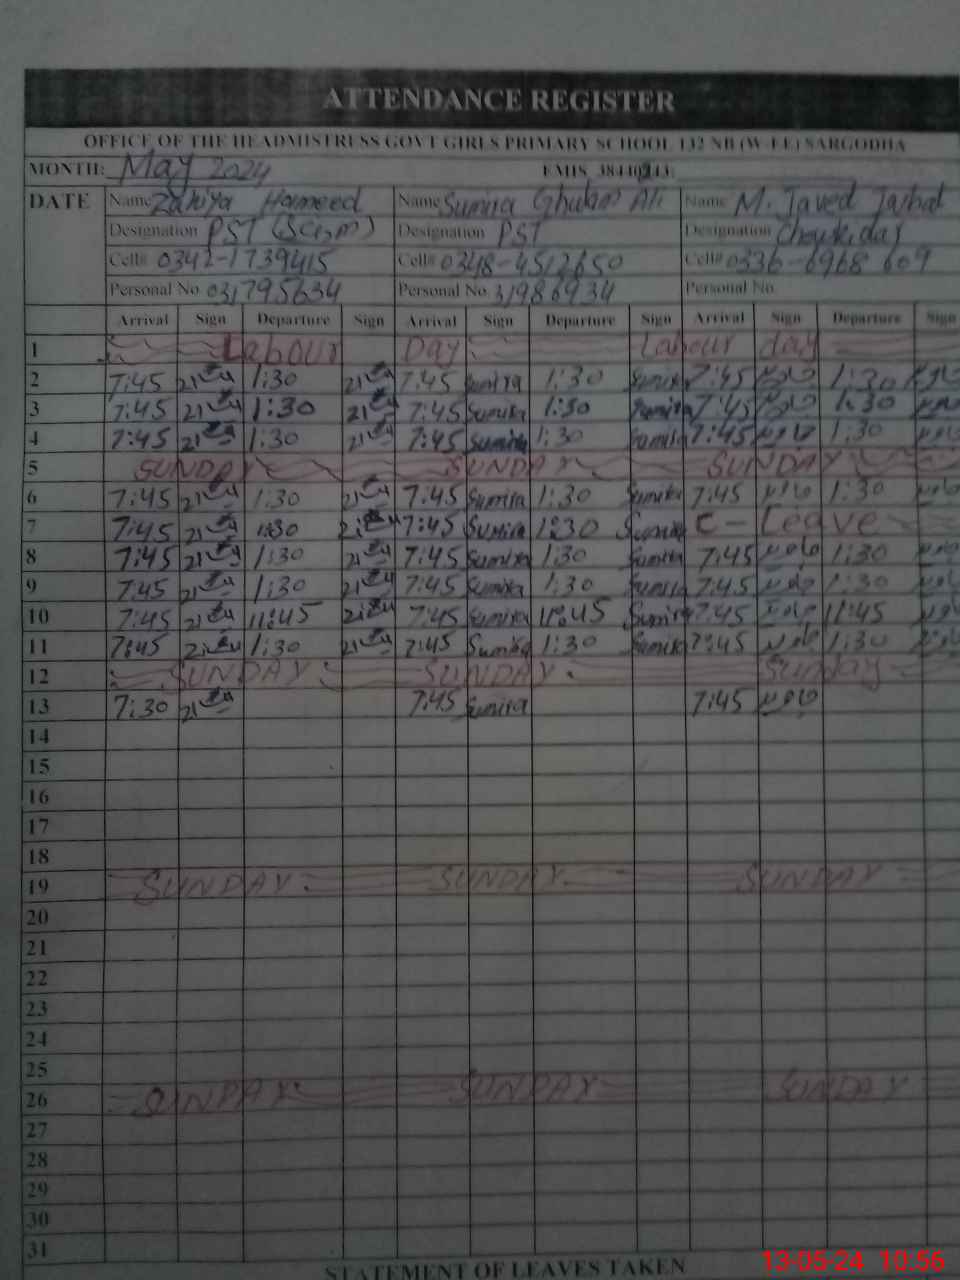 ATTENDANCE REGISTER
OFFICE OF THE HEADMISTRESS GOVT GIRLS PRIMARY SCHOOL 132 NB (W-EE) SARGODHA
MONTH: May 2024 EMIS
DATE Name Zakiya Hameed Name Sumira Ghulam Ali Name M. Javed Iqbal
Designation PST Designation PST Designation Chowkidar
Cell# 0342-1739415 Cell# 0348-4512650 Cell# 0336-6968 609
Personal No 031795634 Personal No 31986934 Personal No
Arrival Sign Departure Sign Arrival Sign Departure Sign Arrival Sign Departure Sign
1 Labour Day Labour day
2 7:45 1:30 7:45 Sumira 1:30 Sumira 7:45 جاوید 1:30 جاوید
3 7:45 1:30 7:45 Sumira 1:30 Sumira 7:45 جاوید 1:30 جاوید
4 7:45 1:30 7:45 Sumira 1:30 Sumira 7:45 جاوید 1:30 جاوید
5 SUNDAY SUNDAY SUNDAY
6 7:45 1:30 7:45 Sumira 1:30 Sumira 7:45 جاوید 1:30 جاوید
7 7:45 1:30 7:45 Sumira 1:30 Sumira C-Leave
8 7:45 1:30 7:45 Sumira 1:30 Sumira 7:45 جاوید 1:30 جاوید
9 7:45 1:30 7:45 Sumira 1:30 Sumira 7:45 جاوید 1:30 جاوید
10 7:45 11:45 7:45 Sumira 11:45 Sumira 7:45 جاوید 11:45 جاوید
11 7:45 1:30 7:45 Sumira 1:30 Sumira 7:45 جاوید 1:30 جاوید
12 SUNDAY SUNDAY Sunday
13 7:30 7:45 Sumira 7:45 جاوید
14
15
16
17
18
19 SUNDAY SUNDAY SUNDAY
20
21
22
23
24
25
26 SUNDAY SUNDAY SUNDAY
27
28
29
30
31
STATEMENT OF LEAVES TAKEN
13-05-24 10:56